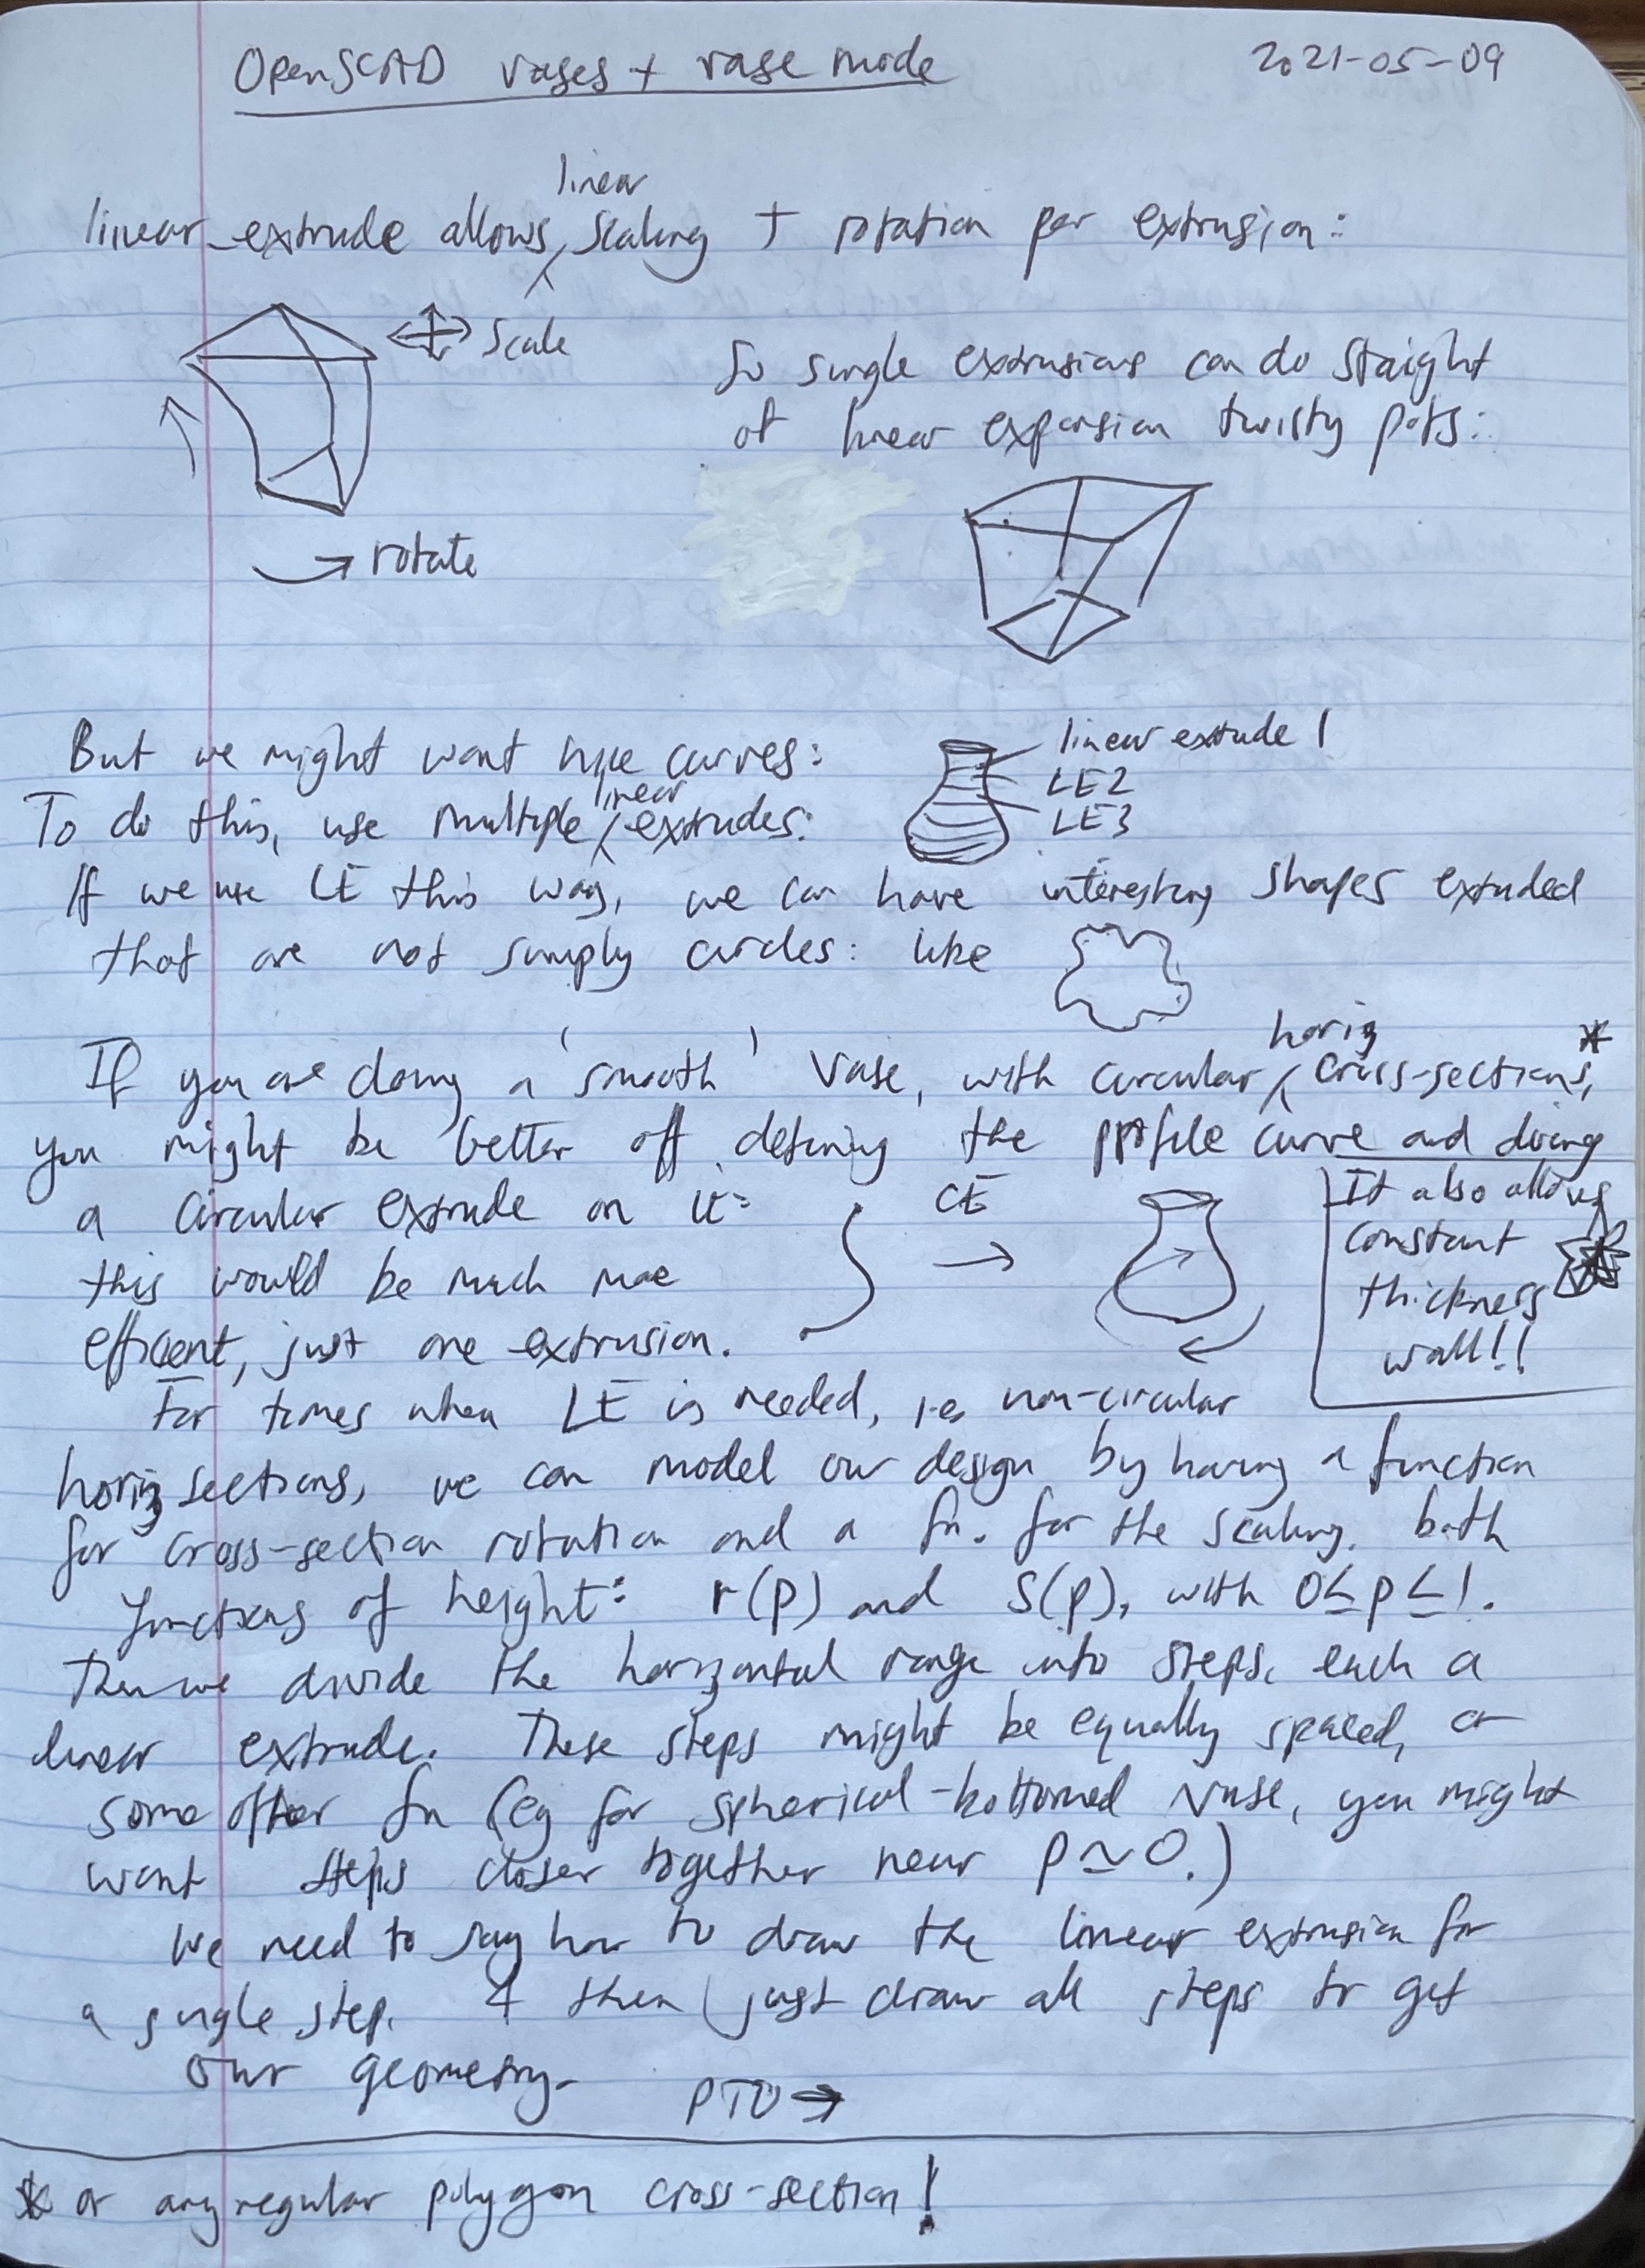 OpenSCAD vases + vase mode 2021-05-09
linear_extrude allows linear scaling + rotation per extrusion:
scale
rotate
So single extrusions can do staight
of linear expansion twisty pots:
But we might want nice curves:
linear extrude 1
LE2
LE3
To do this, use multiple linear extrudes:
If we use LE this way, we can have interesting shapes extruded
that are not simply circles: like
If you are doing a 'smooth' vase, with circular horiz cross-sections,*
you might be better off defining the profile curve and doing
a circular extrude on it:
CE
this would be much more
efficent, just one extrusion.
It also allows
constant
thickness
wall!!
For times when LE is needed, i.e. non-circular
horiz sections, we can model our design by having a function
for cross-section rotation and a fn. for the scaling. both
functions of height: r(p) and S(p), with 0≤p≤1.
Then we divide the horizontal range into steps, each a
linear extrude. These steps might be equally spaced, or
some other fn (eg for spherical-bottomed vase, you might
want steps closer together near p≃0.)
We need to say how to draw the linear extrusion for
a single step. & then just draw all steps to get
our geometry.
PTO →
* or any regular polygon cross-section!